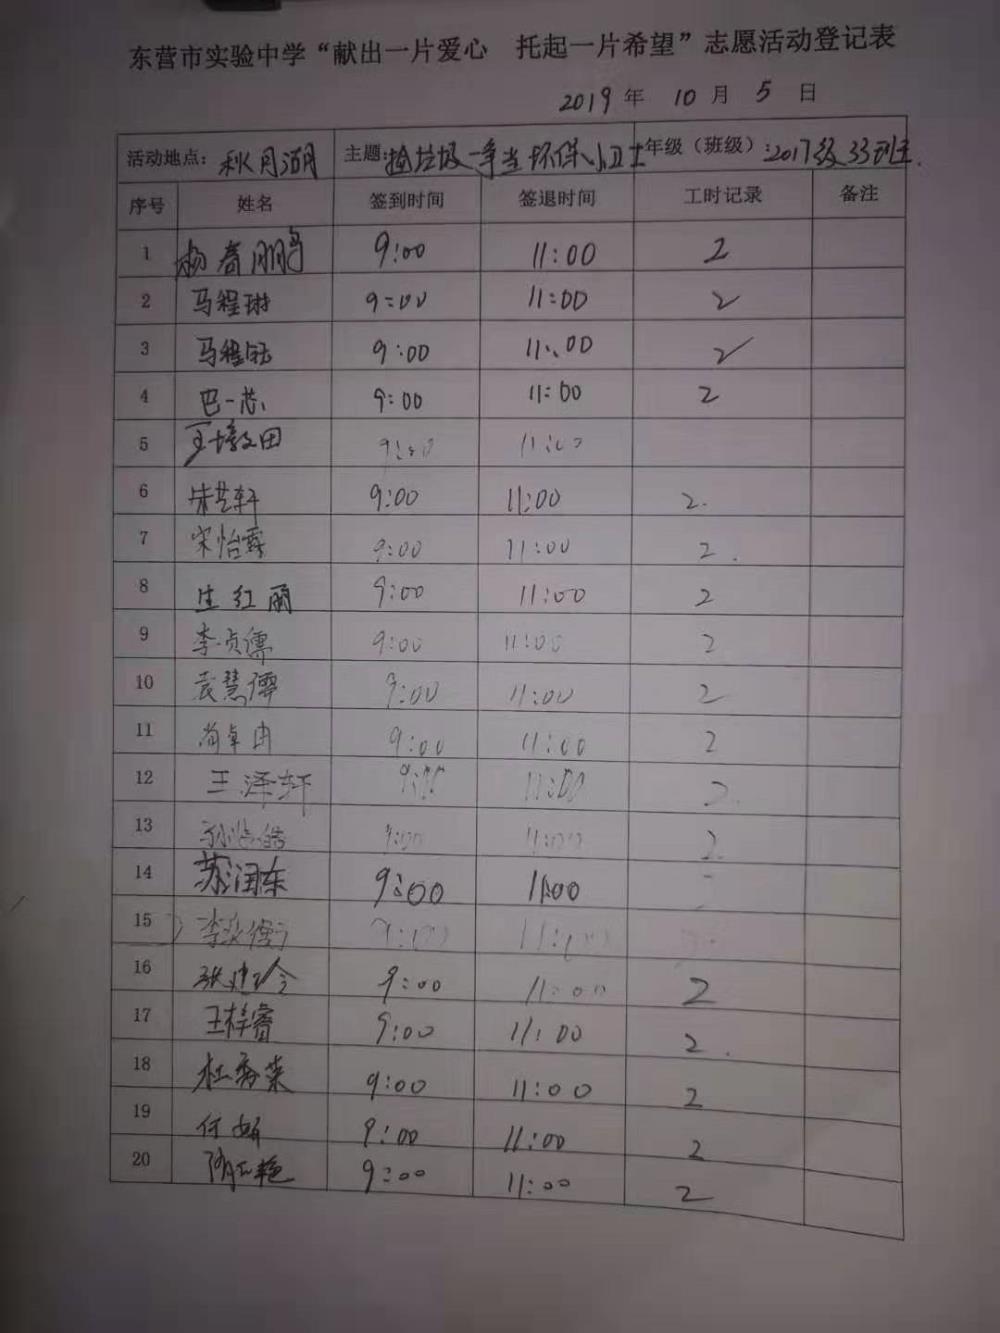 东营市实验中学“献出一片爱心 托起一片希望”志愿活动登记表
2019 年 10 月 5 日
活动地点：秋月湖 主题：捡垃圾争当环保小卫士 年级（班级）：2017级33班
序号 姓名 签到时间 签退时间 工时记录 备注
1 杨春鹏 9:00 11:00 2
2 马程琳 9:00 11:00 2
3 马程钰 9:00 11:00 2
4 巴一芯 9:00 11:00 2
5 田 9:00 11:00
6 朱艺轩 9:00 11:00 2.
7 宋怡霖 9:00 11:00 2.
8 生红丽 9:00 11:00 2
9 李贞儒 9:00 11:00 2
10 袁慧儒 9:00 11:00 2
11 尚卓冉 9:00 11:00 2
12 王泽轩 9:00 11:00 2.
13 9:00 11:00 2.
14 苏润东 9:00 11:00
15 李 9:00 11:00
16 张 9:00 11:00 2
17 王梓睿 9:00 11:00 2.
18 杜秀荣 9:00 11:00 2
19 何妍 9:00 11:00 2
20 艳 9:00 11:00 2